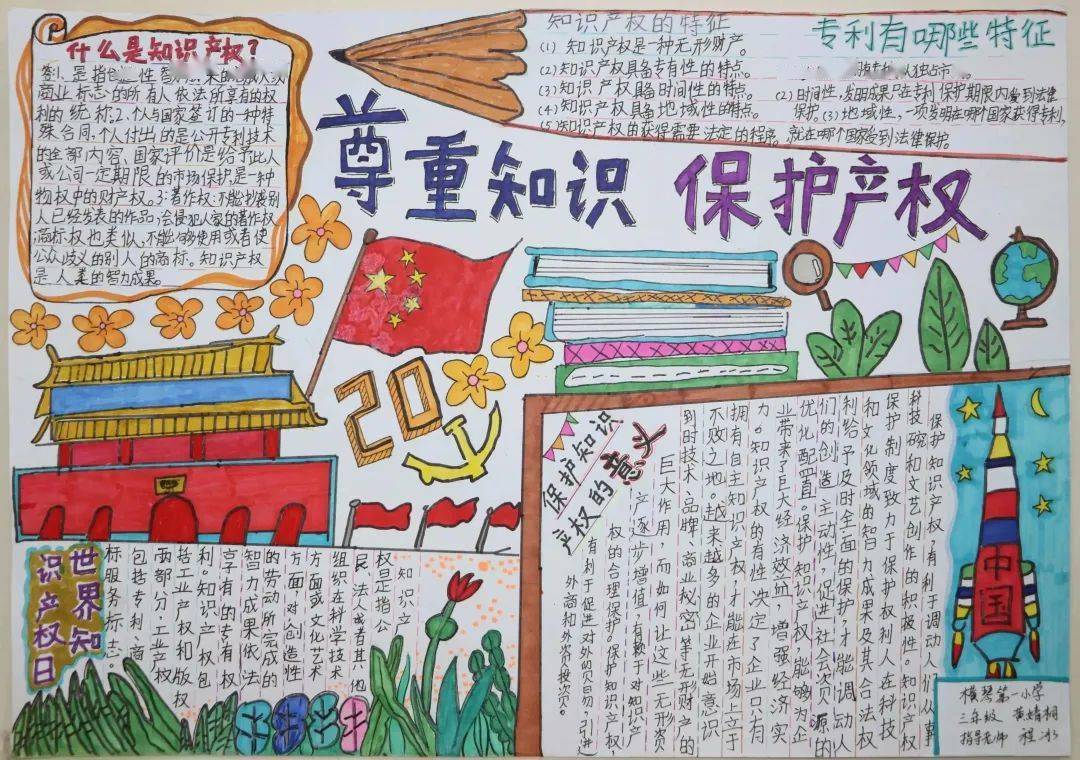 什么是知识产权?
商业标志的所有人依法所享有的权
利的统称。2、个人与国家签订的一种特
殊合同,个人付出的是公开专利技术
的全部内容、国家评价是给予此人
或公司一定期限的市场保护,是一种
物权中的财产权。3:著作权:不能抄袭别
人已经发表的作品,会侵犯人家的著作权,
商标权也类似,不能够使用或者使
公众歧义的别人的商标。知识产权
是人类的智力成果。
知识产权的特征
(1) 知识产权是一种无形财产。
(2)知识产权具备专有性的特点。
(3)知识产权具备时间性的特点。
(4)知识产权具备地域性的特点。
(5)知识产权的获得需要法定的程序。
专利有哪些特征
(2)时间性,发明成果只在专利保护期限内受到法律
保护。(3)地域性,一项发明在哪个国家获得专利,
就在哪个国家受到法律保护。
尊重知识 保护产权
20
世界知
识产权日
知识产
权是指公
民、法人或者其他
组织在科学技术
方面或文化艺术
方面,对创造性
的劳动所完成的
智力成果依法
享有的专有权
利。知识产权包
括工业产权和版权
两部分,工业产权
包括专利、商
标服务标志。
保护知识
产权的意义
保护知识产权,有利于调动人们从事
科技研究和文艺创作的积极性。知识产权
保护制度致力于保护权利人在科技
和文化领域的智力成果及其合法权
利给予及时全面的保护,才能调动人
们的创造主动性,促进社会资源的
优化配置。保护知识产权,能够为企
业带来了巨大经济效益,增强经济实
力。知识产权的有性,决定了企业只有
拥有自主知识产权,才能在市场上立于
不败之地。越来越多的企业开始意识
到时技术、品牌、商业秘密等无形财产的
巨大作用,而如何让这些无形资
产逐步增值,有赖于对知识产
权的合理保护。保护知识产权,
有利于促进对外的贸易,引进
外商和外资投资。
中国
横琴第一小学
三年级 黄婧桐
指导老师 程冰